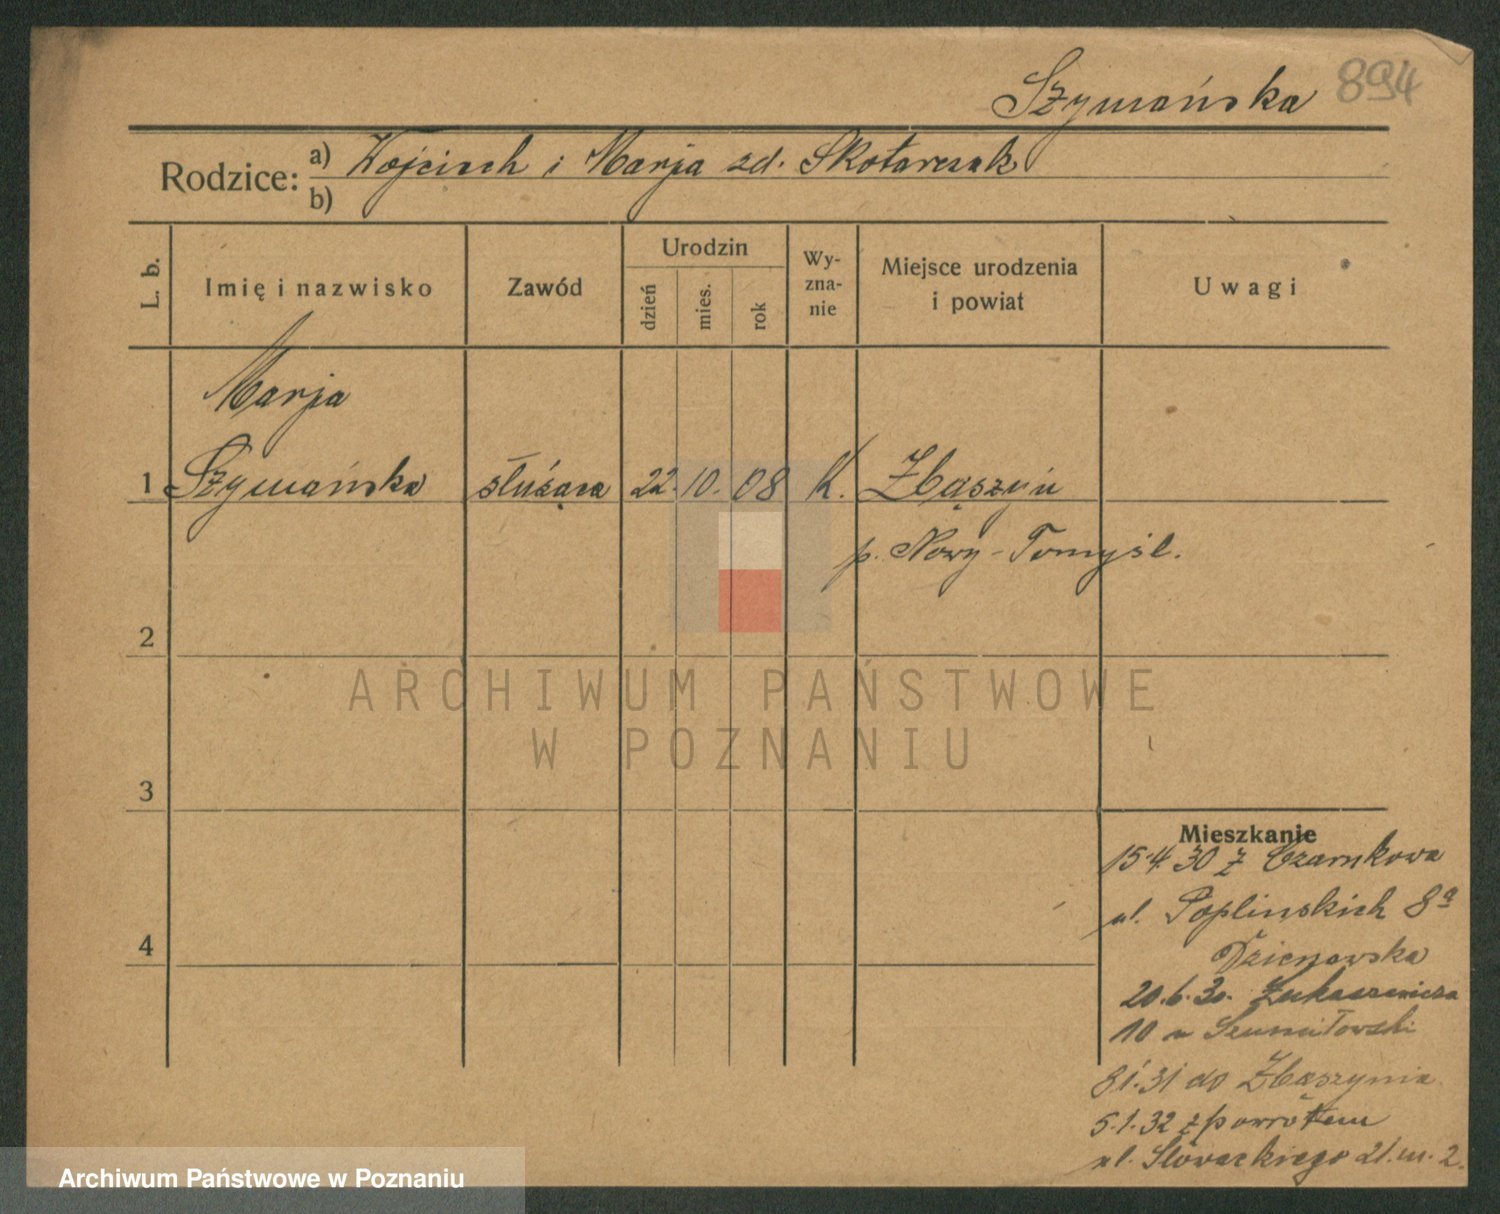 Szymańska 894
Rodzice: a) Wojciech i Marja zd. Skotarczak
b)
L. b.
Imię i nazwisko
Zawód
Urodzin
dzień
mies.
rok
Wy-
zna-
nie
Miejsce urodzenia
i powiat
Uwagi
Marja
1 Szymańska służąca 22. 10. 08 K. Zbąszyń
p. Nowy-Tomyśl.
2
ARCHIWUM PAŃSTWOWE
W POZNANIU
3
Mieszkanie
15.4.30 z Czarnkowa
ul. Poplinskich 8a
4
20.6.30. Łukaszewicza
10 u Szumiłowski
8.1.31 do Zbąszynia
5.1.32 z powrotem
ul. Słowackiego 21. m. 2.
Archiwum Państwowe w Poznaniu